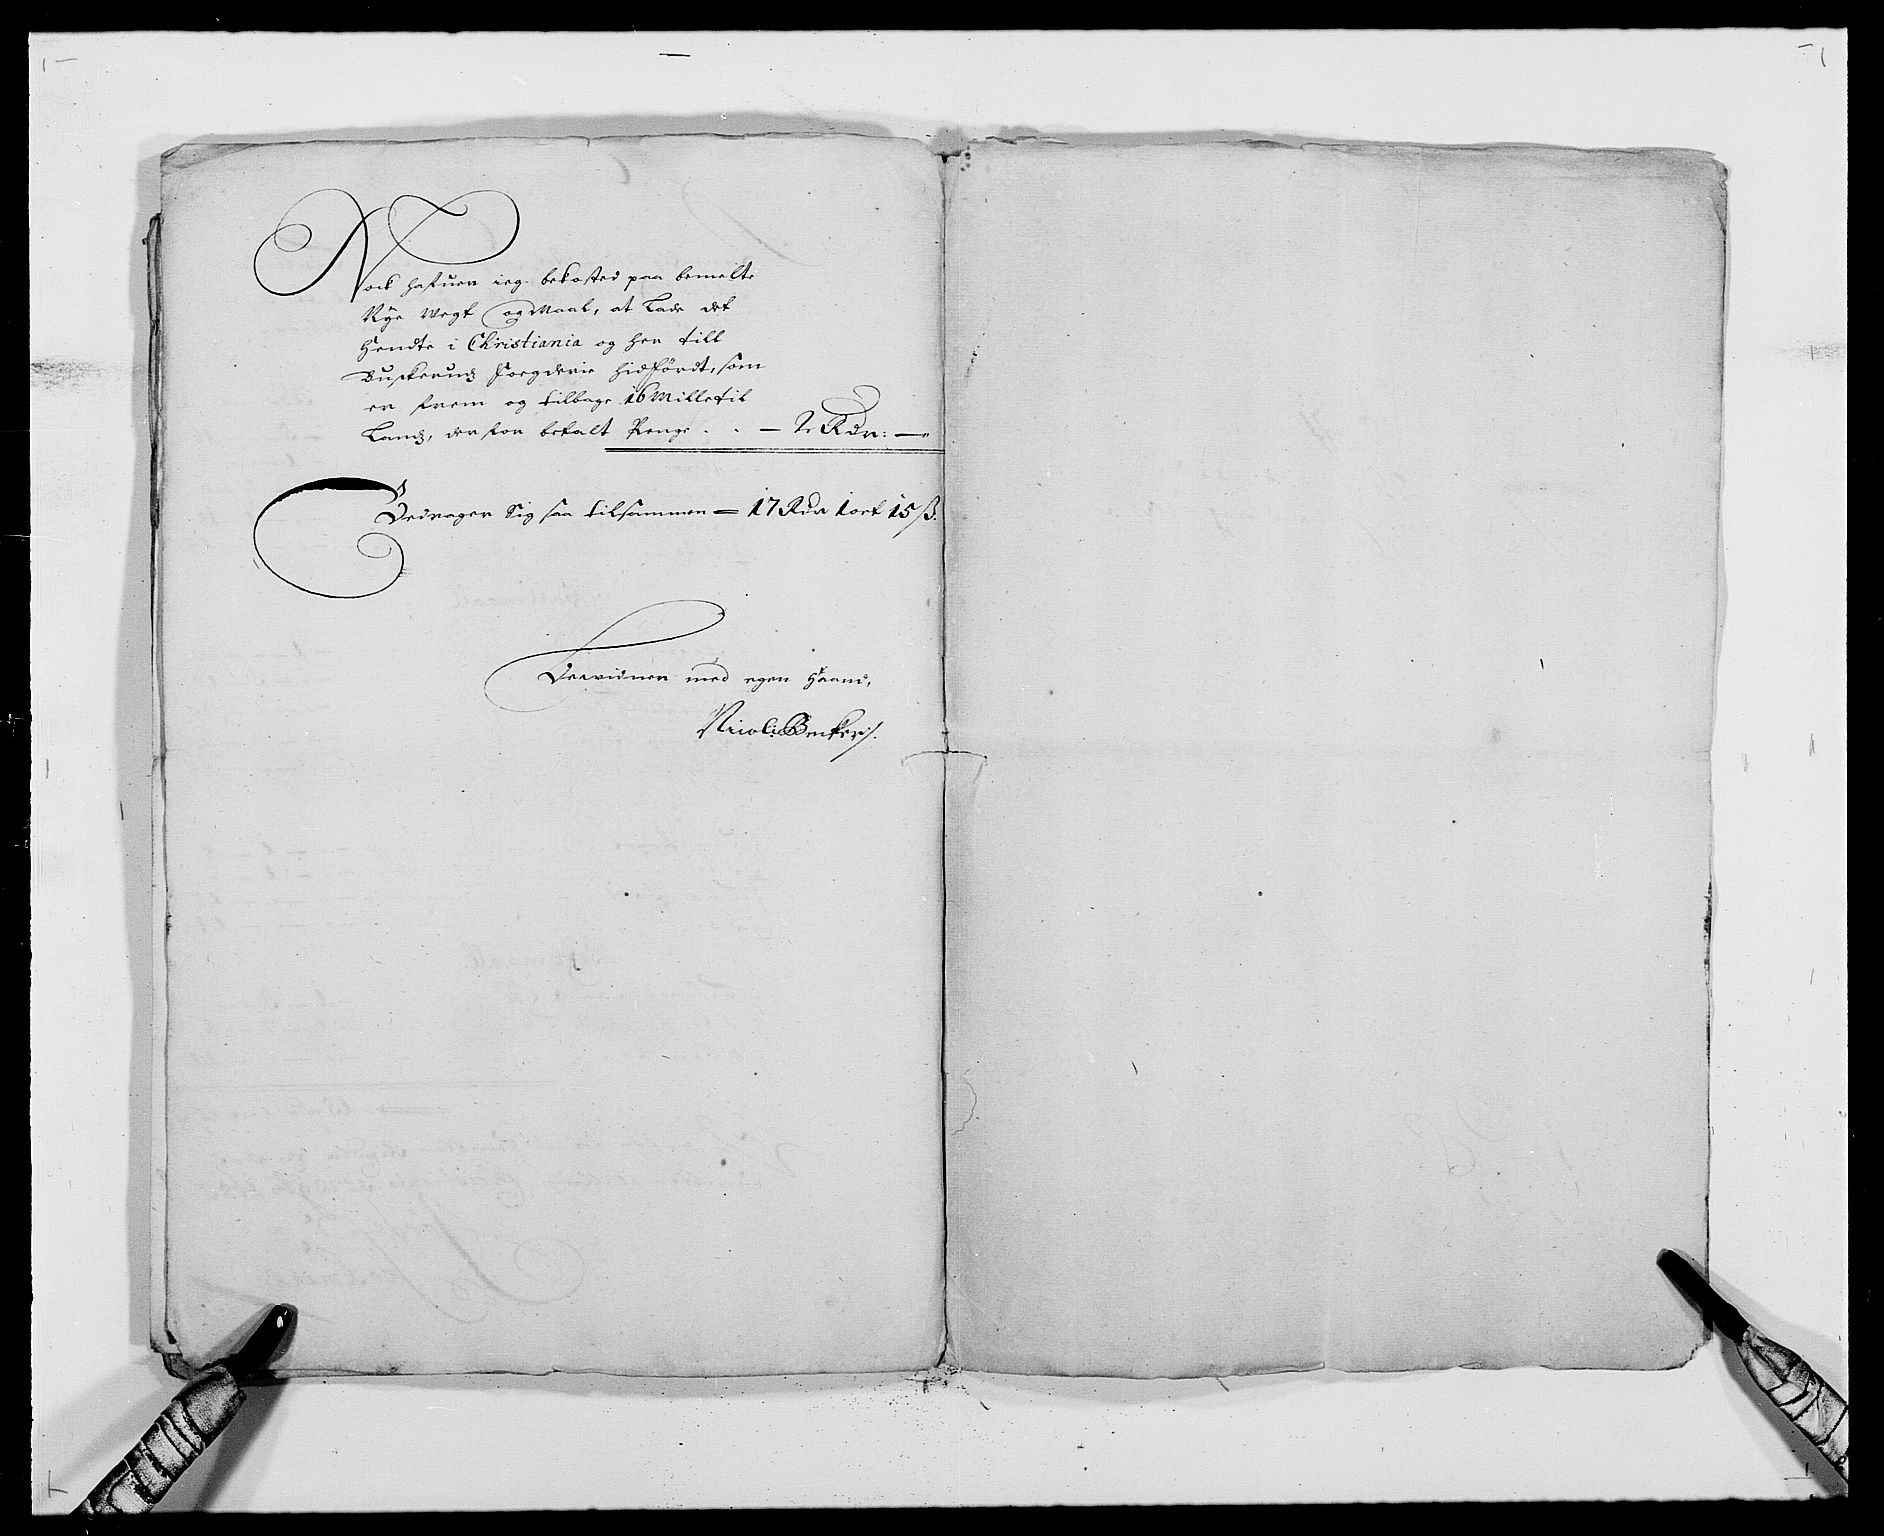 Nock hafuer ieg bekosted paa bemelte
Nye Wegt og Maal, at Lade det
Hendte i Christiania og her till
Buskeruds Foegderie hidfördt, som
er frem og tilbage 16 Mille til
Lands, der for betalt Penge - - — 2 Rdr: —
Bedrager Sig saa tilsammen = 17 Rdr 1 ort 15 ß.
Bevidner med egen Haand,
Nicoli Becker